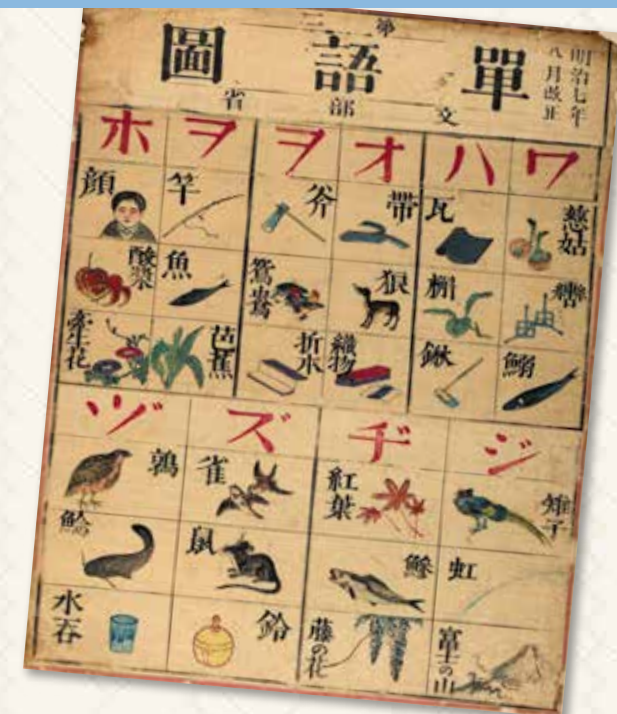 明治七年
八月改正
第三
單語圖
文部省
ワ
ハ
オ
ヲ
ヲ
ホ
慈姑
瓦
帶
斧
竿
顔
轡
槲
狼
鴛鴦
魚
酸漿
鰯
鍬
織物
折本
芭蕉
牽牛花
ジ
ヂ
ズ
ヅ
雉子
紅葉
雀
鶉
虹
鰺
鼠
鯰
富士の山
藤の花
鈴
水呑